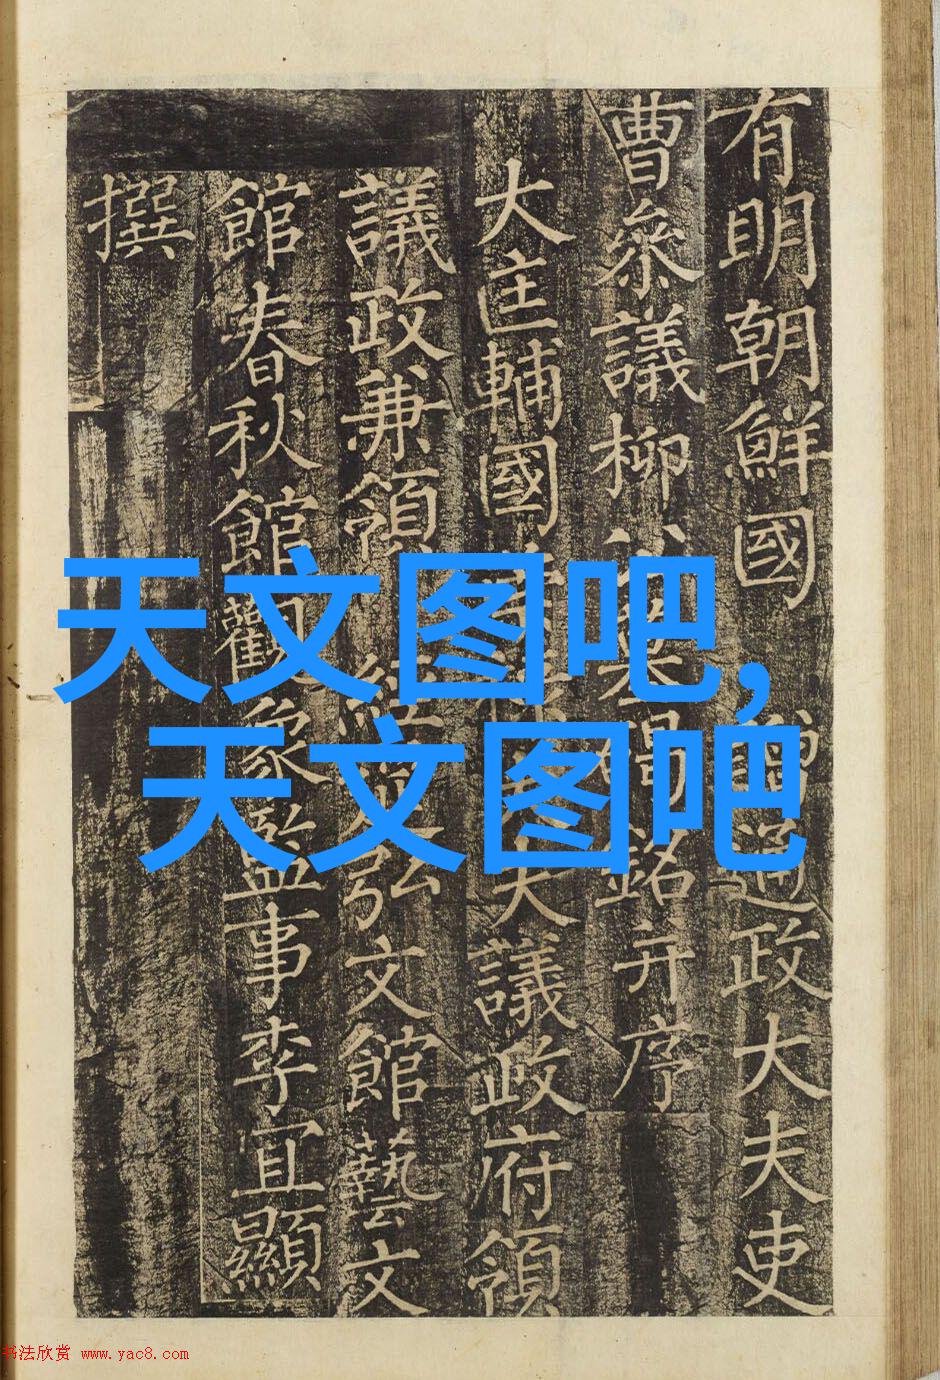 有明朝鮮國 贈通政大夫吏
曹叅議柳公墓碣銘并序
大匡輔國崇祿大夫議政府領
議政兼領經筵弘文館藝文
館春秋館觀象監事李宜顯
撰
天文图吧,
天文图吧
书法欣赏 www.yac8.com